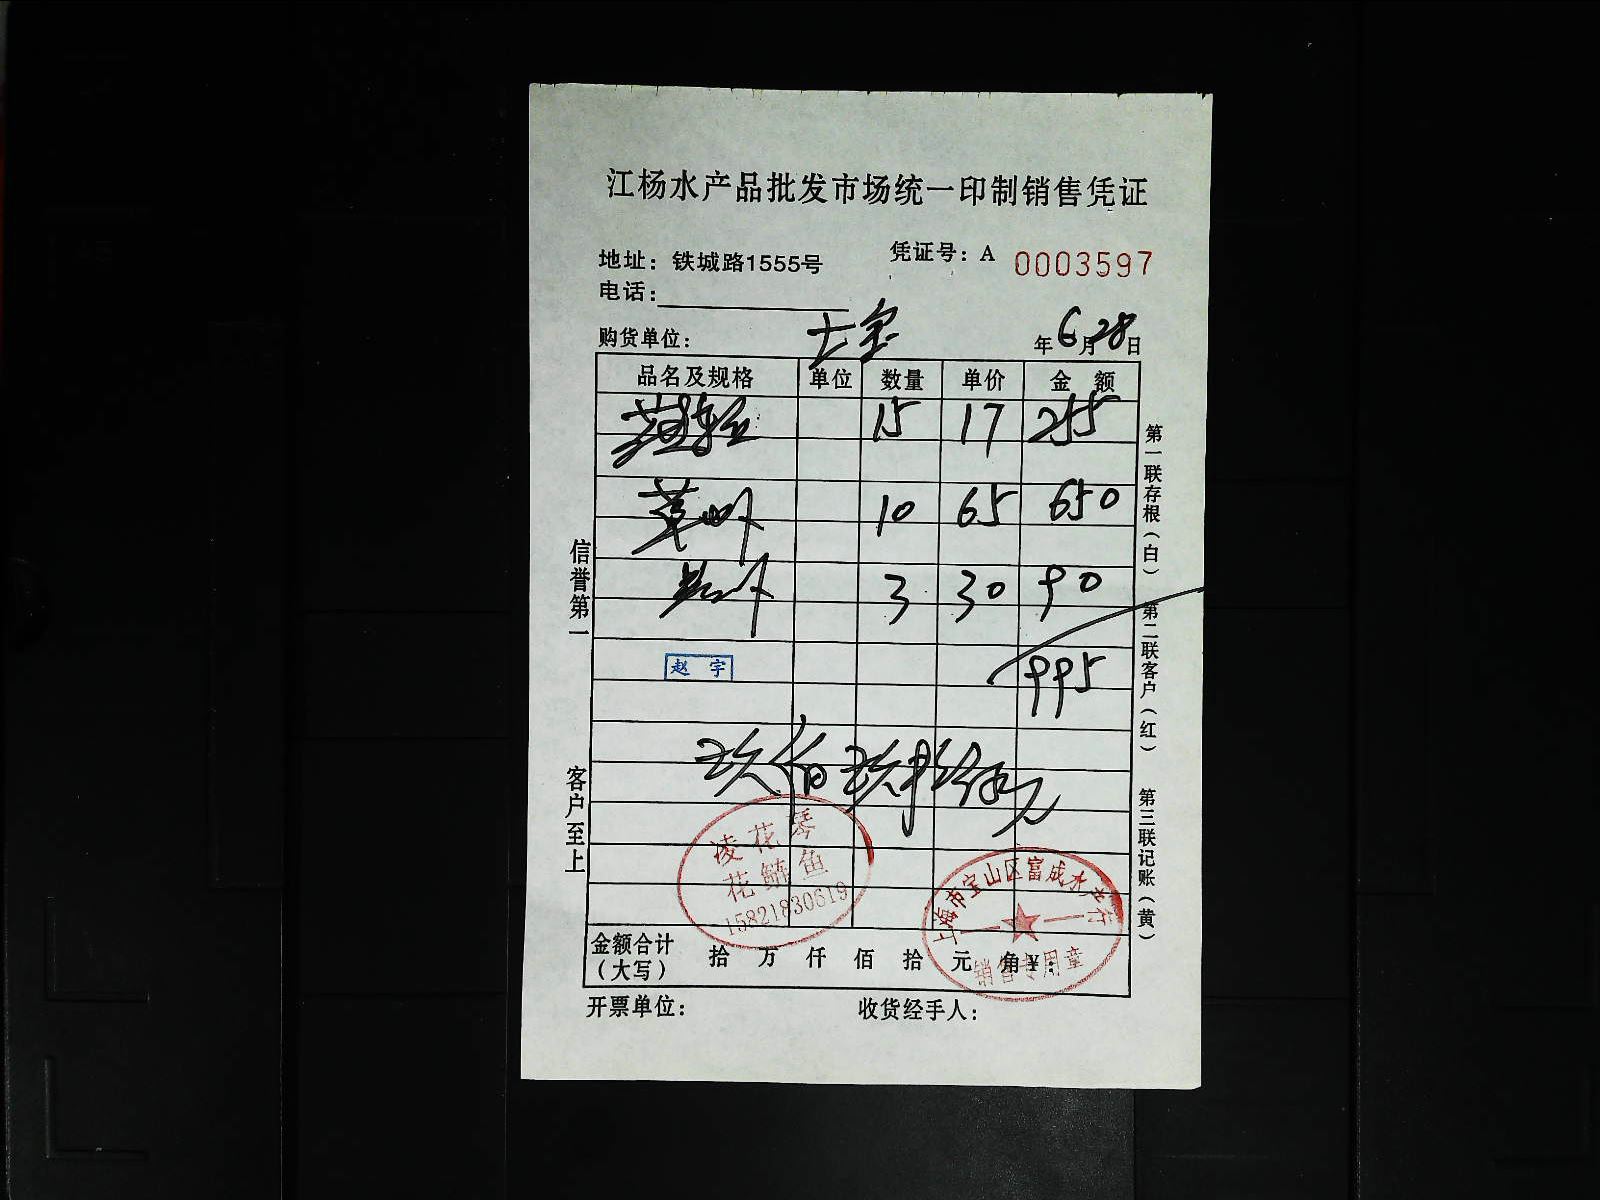 江杨水产品批发市场统一印制销售凭证
地址：铁城路1555号
凭证号：A 0003597
电话：
购货单位： 七宝 年6月28日
品名及规格 单位 数量 单价 金额
15 17 255
草虾 10 65 650
3 30 90
赵宇 995
玖佰玖拾伍元
凌花琴
花鲢鱼
15821830619
上海市宝山区富成水产行
销售专用章
金额合计（大写） 拾 万 仟 佰 拾 元 角 ¥：
开票单位： 收货经手人：
信誉第一
客户至上
第一联存根（白） 第二联客户（红） 第三联记账（黄）